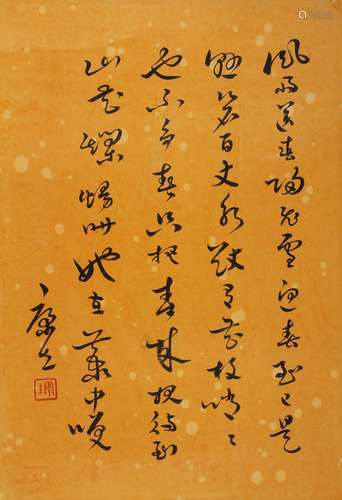 風雨送春歸飛雪迎春到已是
懸岩百丈冰猶有花枝俏〻
也不爭春只把春來報待到
山花爛熳時她在叢中咲
康生